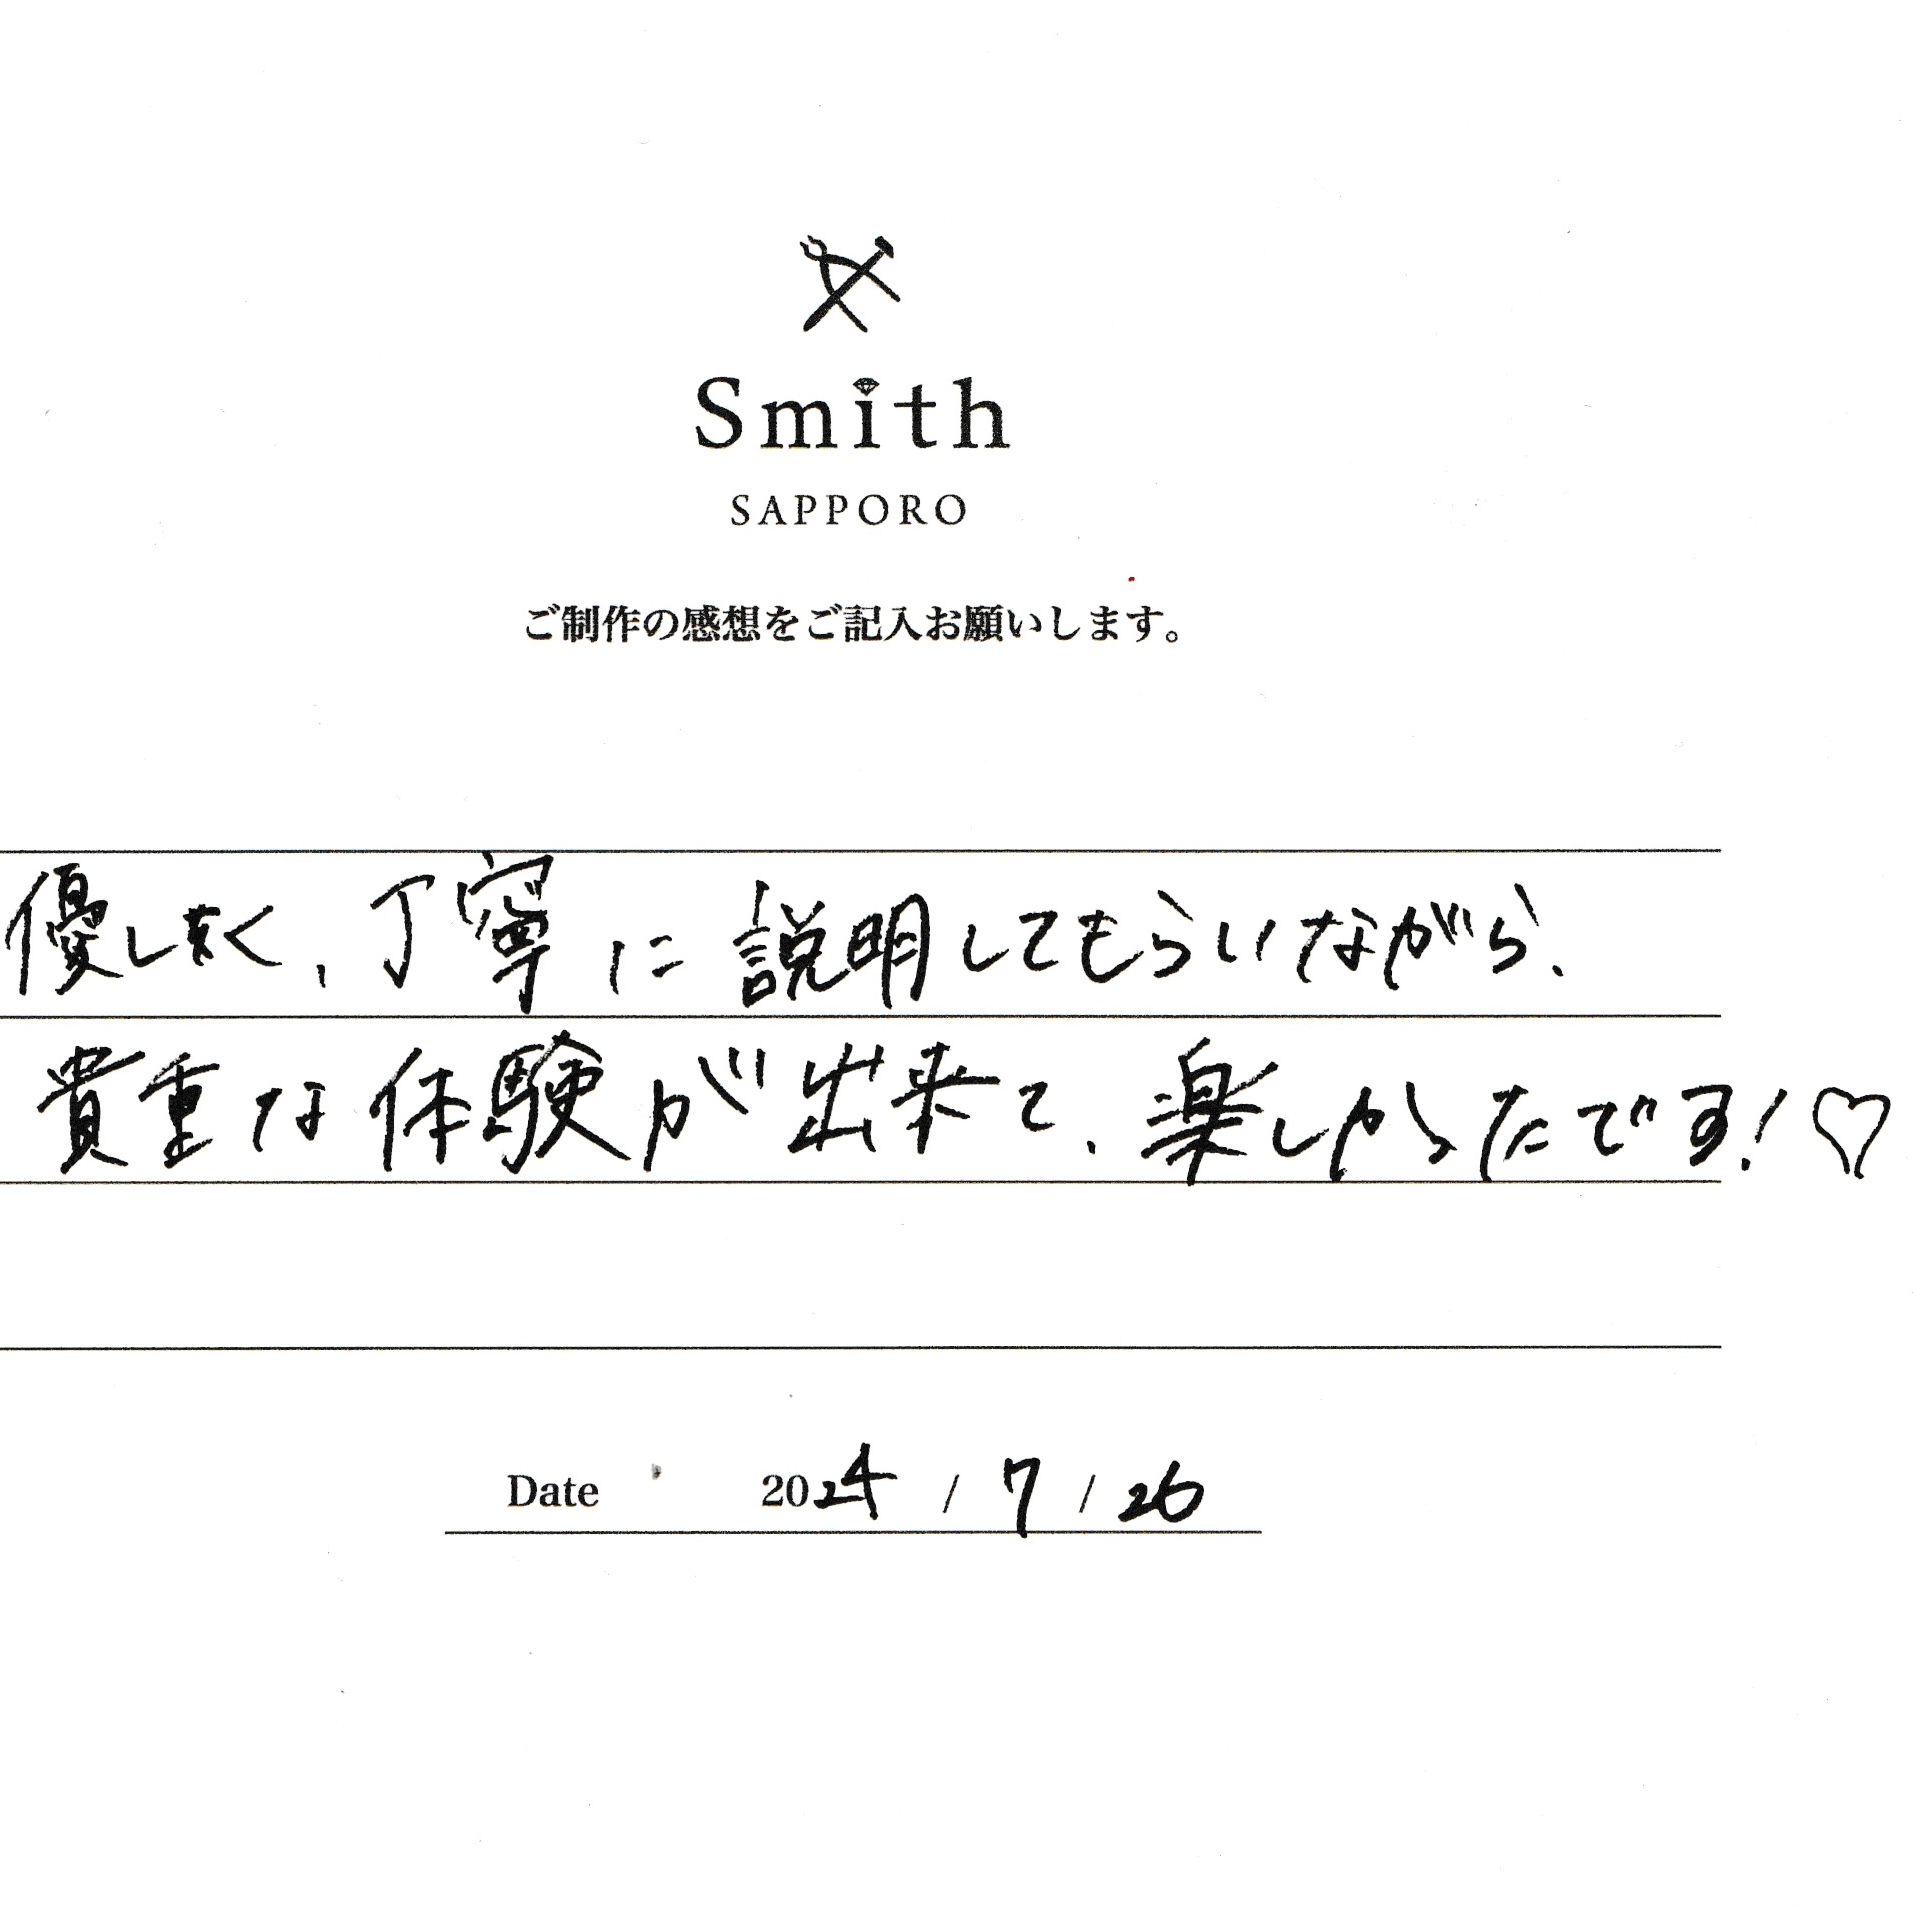 Smith
SAPPORO
ご制作の感想をご記入お願いします。
優しく、丁寧に説明してもらいながら、
貴重な体験が出来て、楽しかったです!♡
Date 2024 / 7 / 26